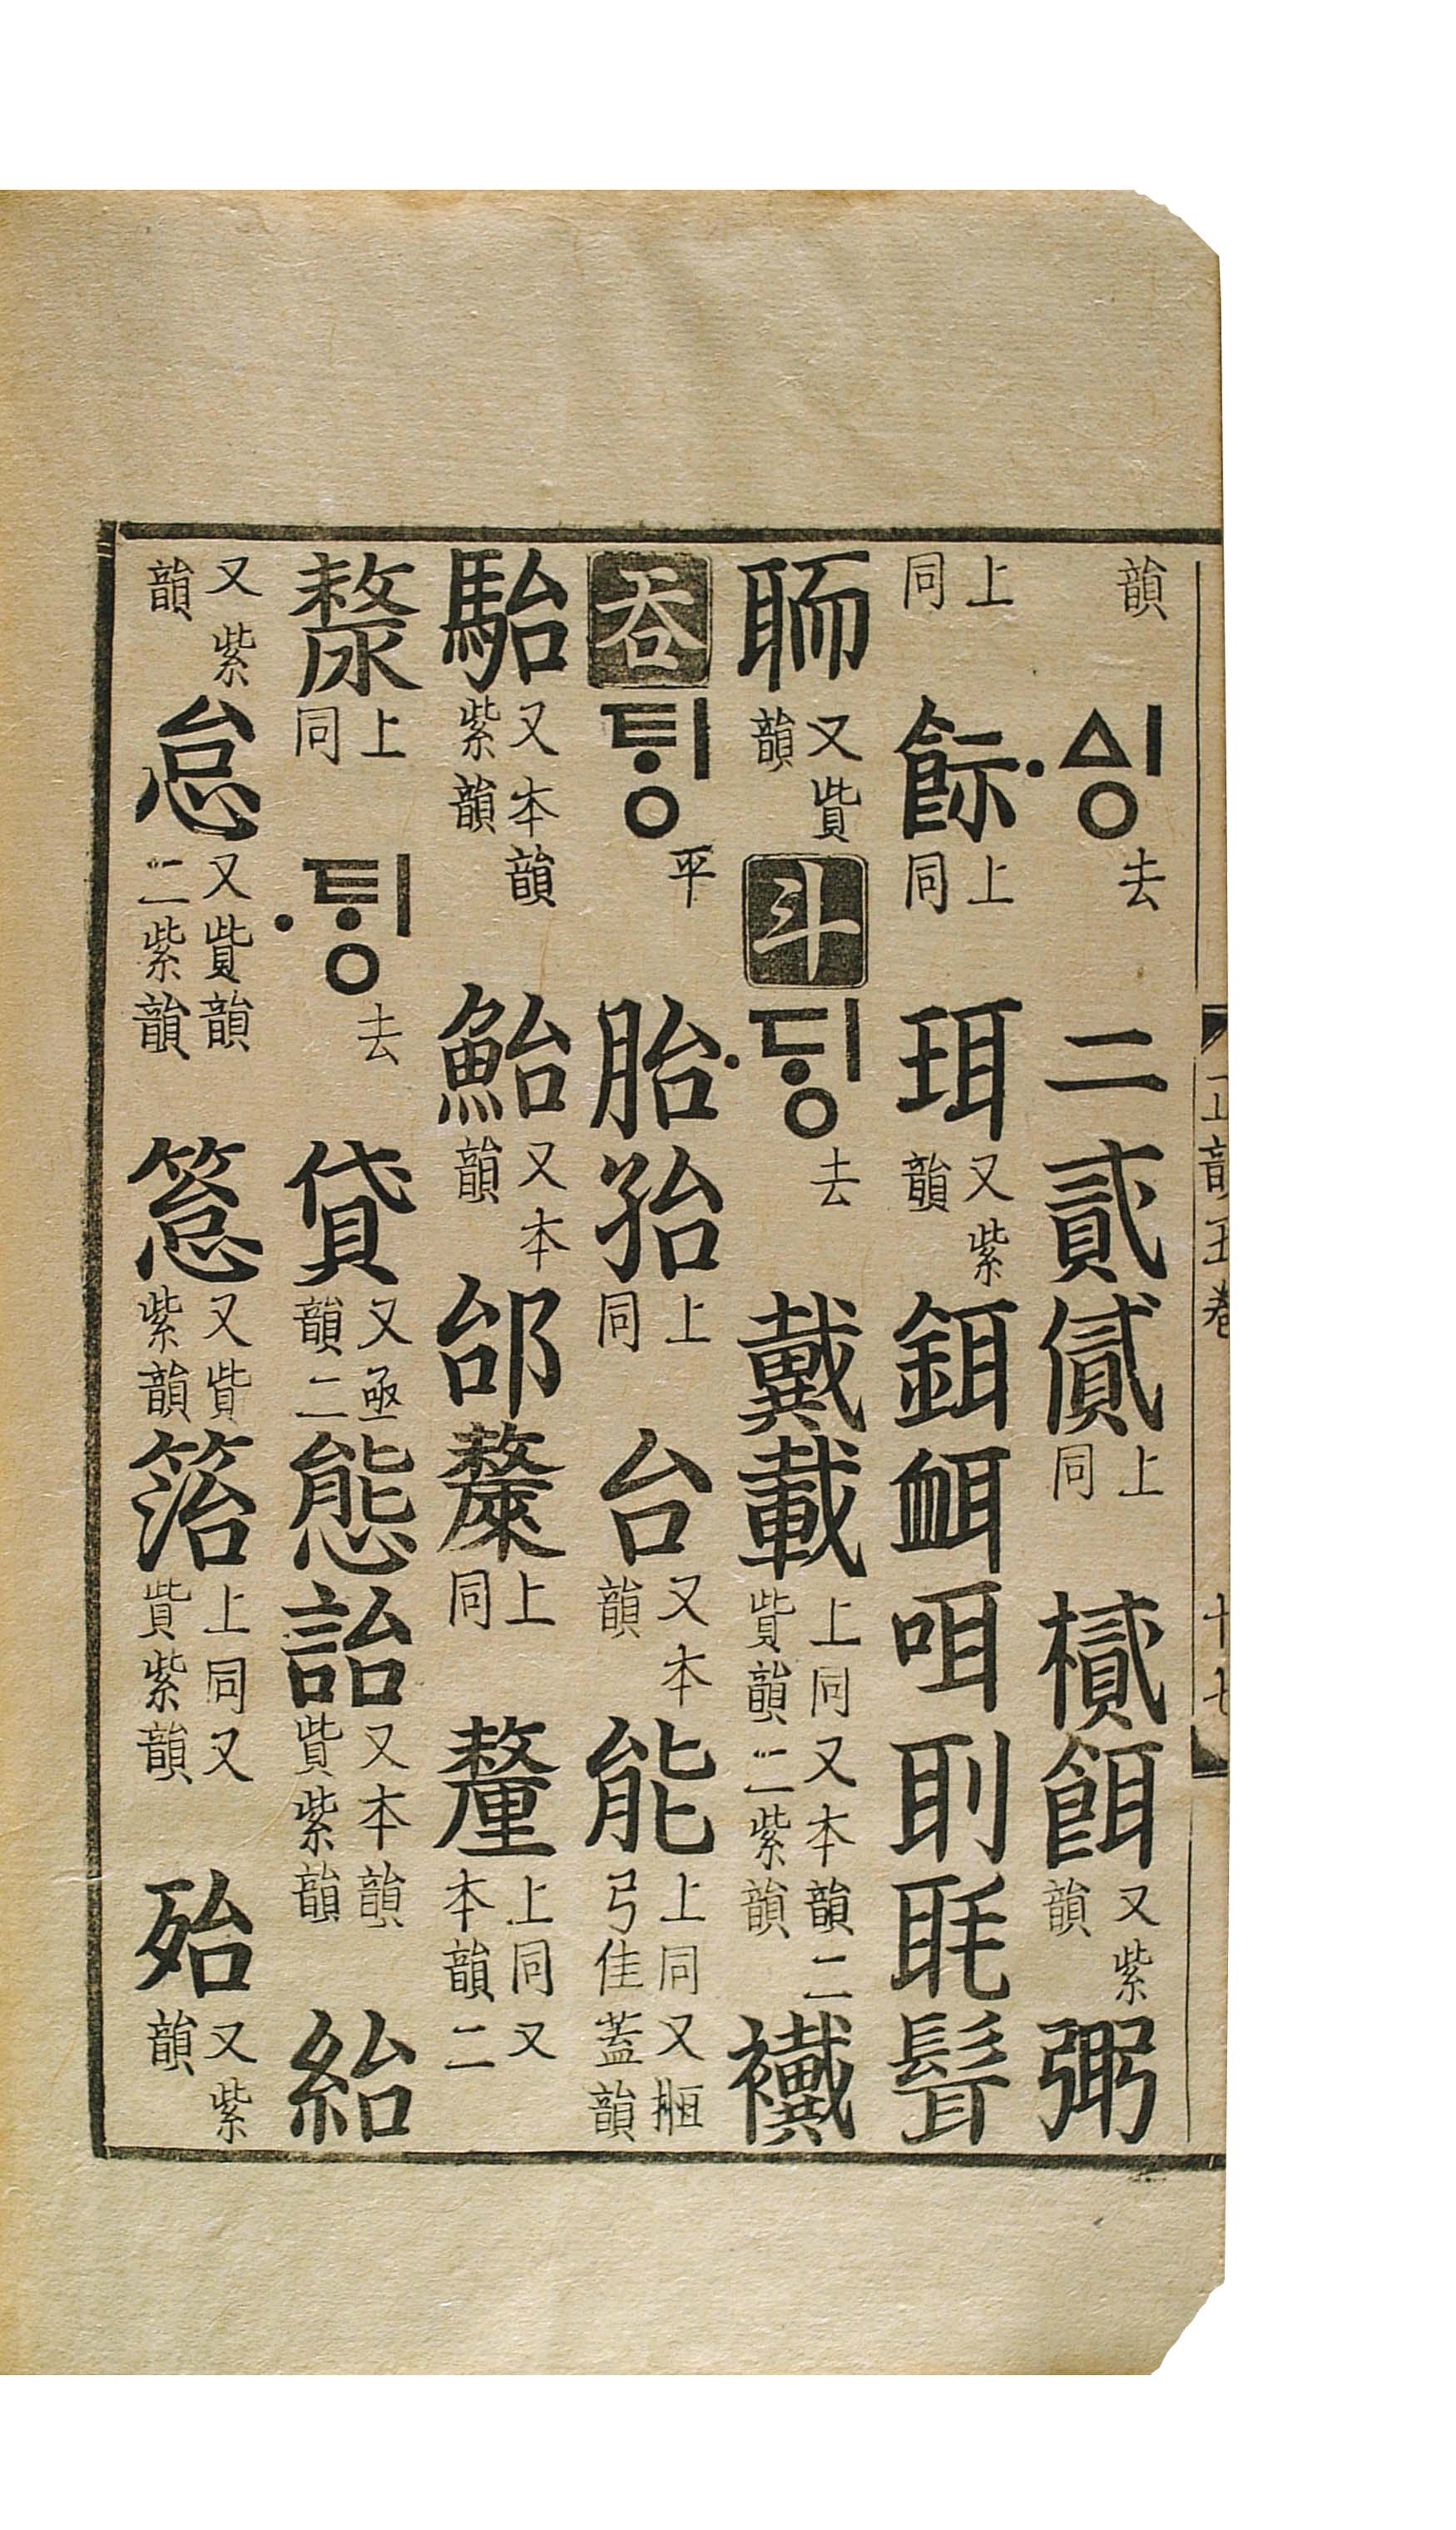 韻 ·ᅀᅵᆼ去 二貳㒃上同 樲餌又紫韻
上同 上同 珥又紫韻 鉺衈咡刵毦髶
聏又貲韻 斗 ·ᄃᆡᆼ去 戴載上同又本韻二貲韻二紫韻 襶
呑 ᄐᆡᆼ平 胎孡上同 台又本韻 能上同又揯弓佳蓋韻
駘又本韻紫韻 鮐又本韻 邰斄上同 釐上同又本韻二
漦上同 ·ᄐᆡᆼ去 貸又亟韻二 態詒又本韻貲紫韻 紿
又紫韻 怠又貲韻二紫韻 又貲紫韻 箈上同又貲紫韻 殆又紫韻
正韻五卷 十七